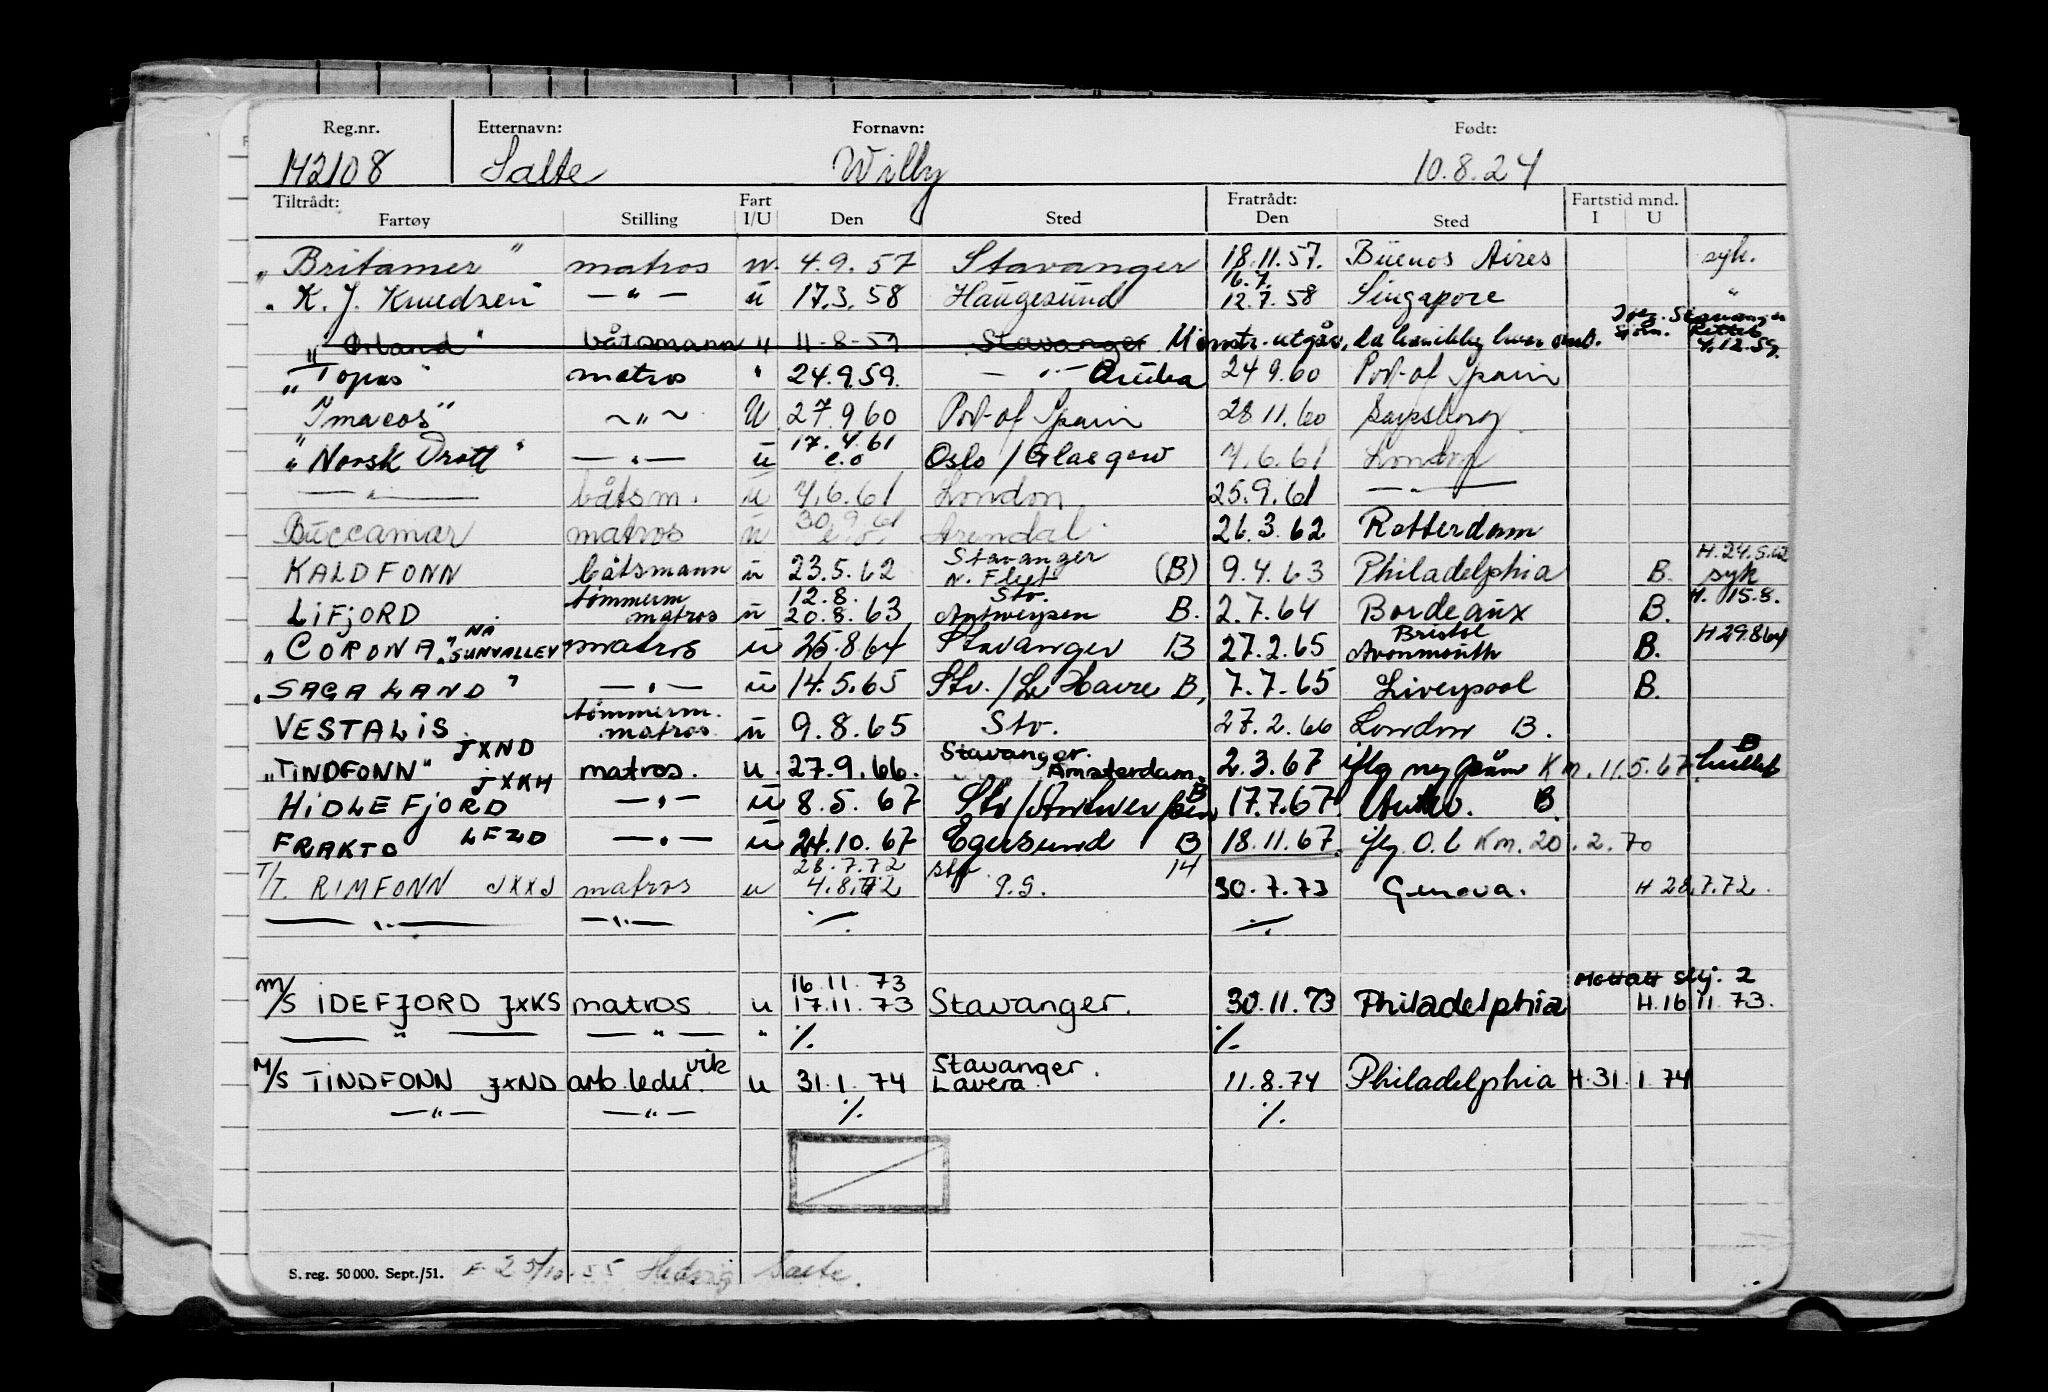 Reg.nr. Etternavn: Fornavn: Født:
142108 Salte Willy 10.8.24
Tiltrådt: Fart Fratrådt: Fartstid mnd.
Fartøy Stilling I/U Den Sted Den Sted I U
„Britamer" matros u. 4.9.57 Stavanger 18.11.57. Buenos Aires syk.
„K. J. Knudsen" — " — u 17.3.58 Haugesund 16.7. 12.7.58 Singapore "
„Orland" båtsmann " 11-8-59 Stavanger Mønstr. utgår, da han ikke Stavanger Sjøm. Rettet 4/12.59.
„Topas" matros " 24.9.59. — " — Aruba 24 9.60 Port of Spain
"Imacos" ~ " ~ U 27 9 60 Port of Spain 28.11.60 Sarpsborg
„Norsk Drott" — " — u 17.4.61 e.o Oslo / Glasgow 7.6.61 London
— " — båtsm. u 7.6.61 London 25.9.61 — " —
Buccamar matros u 30.9.61 e.o. Arendal. 26.3.62 Rotterdam
KALDFONN båtsmann u 23.5.62 Stavanger N. Fleet (B) 9.4.63 Philadelphia B. H.24.5.62 syk
LIFJORD tømmerm matros u 12.8. 20.8.63 Stv. Antwerpen B. 2.7.64 Bordeaux B. H. 15.8.
„CORONA" NÅ „SUNVALLEY" matros u 25.8.64 Stavanger B 27.2.65 Bristol Avonmouth B. H 29.8.64
„SAGALAND" — " — u 14.5.65 Stv. / Le Havre B, 7.7.65 Liverpool B.
VESTALIS tømmerm. matros u 9.8.65 Stv. 27.2.66 London B.
„TINDFONN" JXND matros. u. 27.9.66. Stavanger. Amsterdam. 2.3.67 iflg ny påm Km. 11.5.67 B
HIDLEFJORD JXKH — " — u 8.5.67 Stv / Antwerpen B 17.7.67. Antw. B.
FRAKTO LEZD — " — u 24.10.67 Egersund B 18.11.67. iflg O.l Km. 20.2.70
T/T. RIMFONN JXXJ matros u 28.7.72 4.8.72 Stv P.G. 14 30.7.73 Genova. H 28.7.72.
— " — — " — ·/. ·/.
M/S IDEFJORD JXKS matros u 16.11.73 17.11.73 Stavanger. 30.11.73 Philadelphia Mottatt Skj. 2 H.16.11.73.
— " — — " — " ·/. ·/.
M/S TINDFONN JXND arb. leder. vik u 31.1.74 Stavanger. Lavera 11.8.74 Philadelphia H.31.1.74
— " — — " — ·/. ·/.
S. reg. 50 000. Sept./51. F 25/10.55 Hedvig Salte.